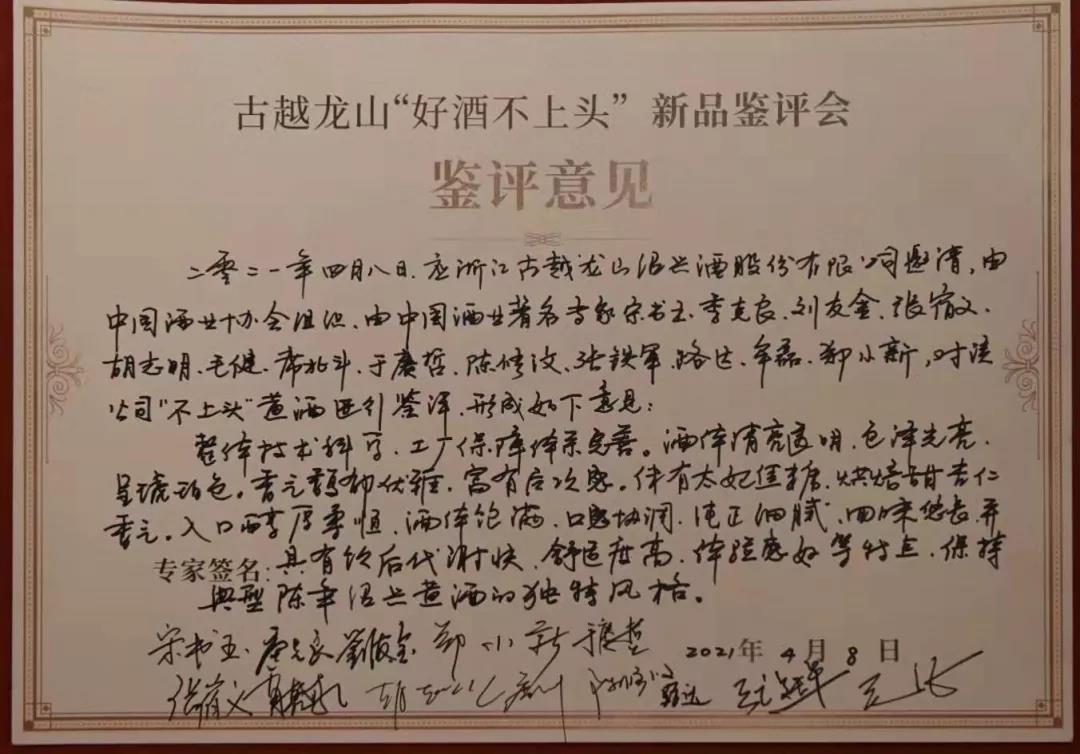 古越龙山“好酒不上头” 新品鉴评会
鉴评意见
二零二一年四月八日,应浙江古越龙山绍兴酒股份有限公司邀请,由
中国酒业协会组织,由中国酒业著名专家宋书玉、李克良、刘友金、张宿义、
胡志明、毛健、席北斗、于赓哲、陈修汶、张铁军、路达、牟磊、郑小新,对该
公司“不上头”黄酒进行鉴评,形成如下意见:
整体技术科学,工厂保障体系完善。酒体清亮透明,色泽光亮,
呈琥珀色。香气馥郁优雅,富有层次感。伴有太妃焦糖、烘焙甜杏仁
香气。入口醇厚柔顺,酒体饱满,口感协调,纯正细腻,回味悠长,并
专家签名:具有饮后代谢快,舒适度高,体验感好等特点,保持
典型陈年绍兴黄酒的独特风格。
宋书玉 郑小新
2021年4月8日
张宿义